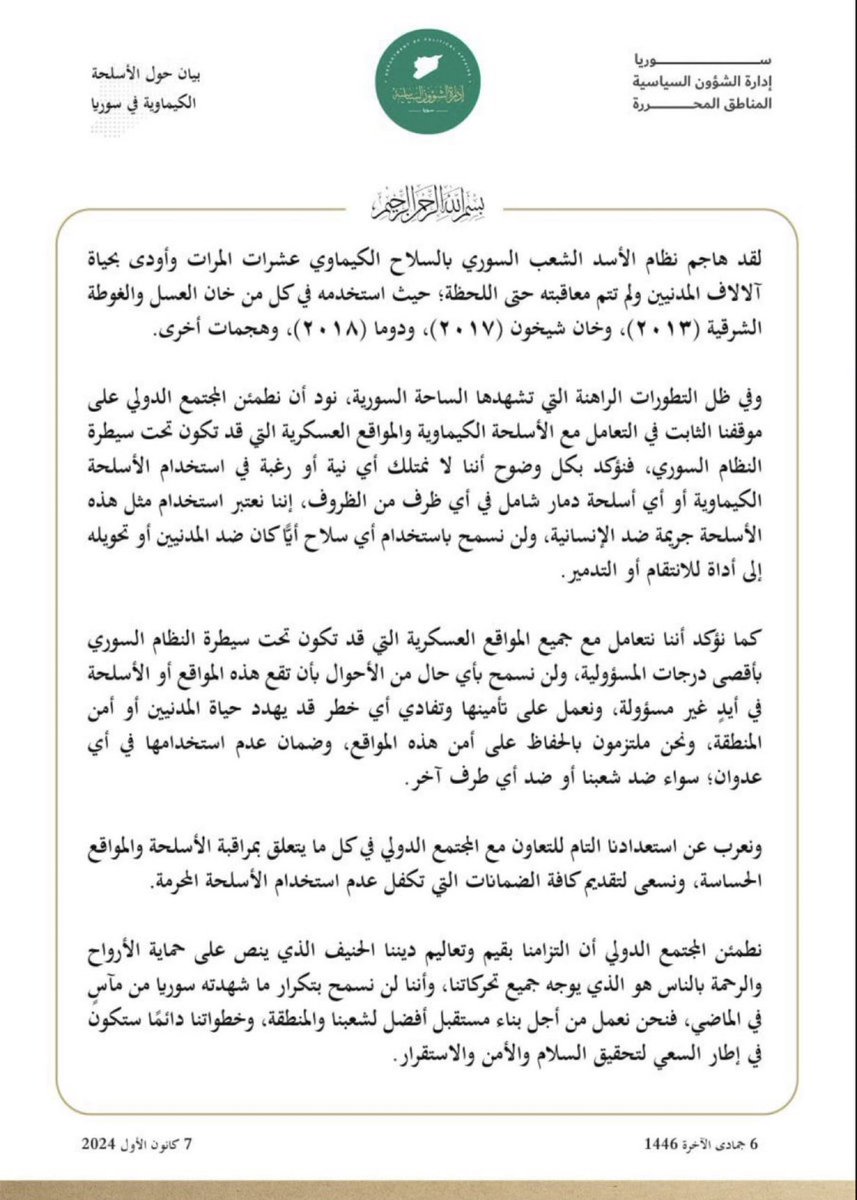 ســـــــــوريا
إدارة الشؤون السياسية
المناطق المحـــــررة
DEPARTMENT OF POLITICAL AFFAIRS
إدارة الشؤون السياسية
سوريا
بيان حول الأسلحة
الكيماوية في سوريا
بسم الله الرحمن الرحيم
لقد هاجم نظام الأسد الشعب السوري بالسلاح الكيماوي عشرات المرات وأودى بحياة
آلالاف المدنيين ولم تتم معاقبته حتى اللحظة؛ حيث استخدمه في كل من خان العسل والغوطة
الشرقية (٢٠١٣)، وخان شيخون (٢٠١٧)، ودوما (٢٠١٨)، وهجمات أخرى.
وفي ظل التطورات الراهنة التي تشهدها الساحة السورية، نود أن نطمئن المجتمع الدولي على
موقفنا الثابت في التعامل مع الأسلحة الكيماوية والمواقع العسكرية التي قد تكون تحت سيطرة
النظام السوري، فنؤكد بكل وضوح أننا لا نمتلك أي نية أو رغبة في استخدام الأسلحة
الكيماوية أو أي أسلحة دمار شامل في أي ظرف من الظروف، إننا نعتبر استخدام مثل هذه
الأسلحة جريمة ضد الإنسانية، ولن نسمح باستخدام أي سلاح أيًّا كان ضد المدنيين أو تحويله
إلى أداة للانتقام أو التدمير.
كما نؤكد أننا نتعامل مع جميع المواقع العسكرية التي قد تكون تحت سيطرة النظام السوري
بأقصى درجات المسؤولية، ولن نسمح بأي حال من الأحوال بأن تقع هذه المواقع أو الأسلحة
في أيدٍ غير مسؤولة، ونعمل على تأمينها وتفادي أي خطر قد يهدد حياة المدنيين أو أمن
المنطقة، ونحن ملتزمون بالحفاظ على أمن هذه المواقع، وضمان عدم استخدامها في أي
عدوان؛ سواء ضد شعبنا أو ضد أي طرف آخر.
ونعرب عن استعدادنا التام للتعاون مع المجتمع الدولي في كل ما يتعلق بمراقبة الأسلحة والمواقع
الحساسة، ونسعى لتقديم كافة الضمانات التي تكفل عدم استخدام الأسلحة المحرمة.
نطمئن المجتمع الدولي أن التزامنا بقيم وتعاليم ديننا الحنيف الذي ينص على حماية الأرواح
والرحمة بالناس هو الذي يوجه جميع تحركاتنا، وأننا لن نسمح بتكرار ما شهدته سوريا من مآسٍ
في الماضي، فنحن نعمل من أجل بناء مستقبل أفضل لشعبنا والمنطقة، وخطواتنا دائمًا ستكون
في إطار السعي لتحقيق السلام والأمن والاستقرار.
6 جمادى الآخرة 1446
7 كانون الأول 2024